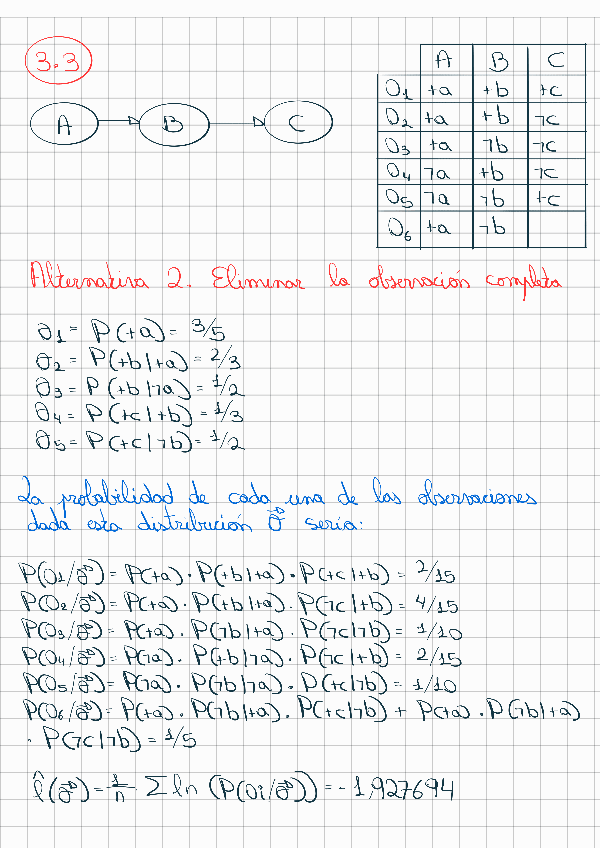 3.3
A B C
A B C
O1 +a +b +c
O2 +a +b ¬c
O3 +a ¬b ¬c
O4 ¬a +b ¬c
O5 ¬a ¬b +c
O6 +a ¬b
Alternativa 2. Eliminar la observación completa
θ1 = P(+a) = 3/5
θ2 = P(+b|+a) = 2/3
θ3 = P(+b|¬a) = 1/2
θ4 = P(+c|+b) = 1/3
θ5 = P(+c|¬b) = 1/2
La probabilidad de cada una de las observaciones
dada esta distribución θ⁰ sería:
P(O1/θ⁰) = P(+a) · P(+b|+a) · P(+c|+b) = 2/15
P(O2/θ⁰) = P(+a) · P(+b|+a) · P(¬c|+b) = 4/15
P(O3/θ⁰) = P(+a) · P(¬b|+a) · P(¬c|¬b) = 1/10
P(O4/θ⁰) = P(¬a) · P(+b|¬a) · P(¬c|+b) = 2/15
P(O5/θ⁰) = P(¬a) · P(¬b|¬a) · P(+c|¬b) = 1/10
P(O6/θ⁰) = P(+a) · P(¬b|+a) · P(+c|¬b) + P(+a) · P(¬b|+a)
· P(¬c|¬b) = 1/5
l̂(θ⁰) = 1/n Σ ln (P(Oi/θ⁰)) = -1,927694